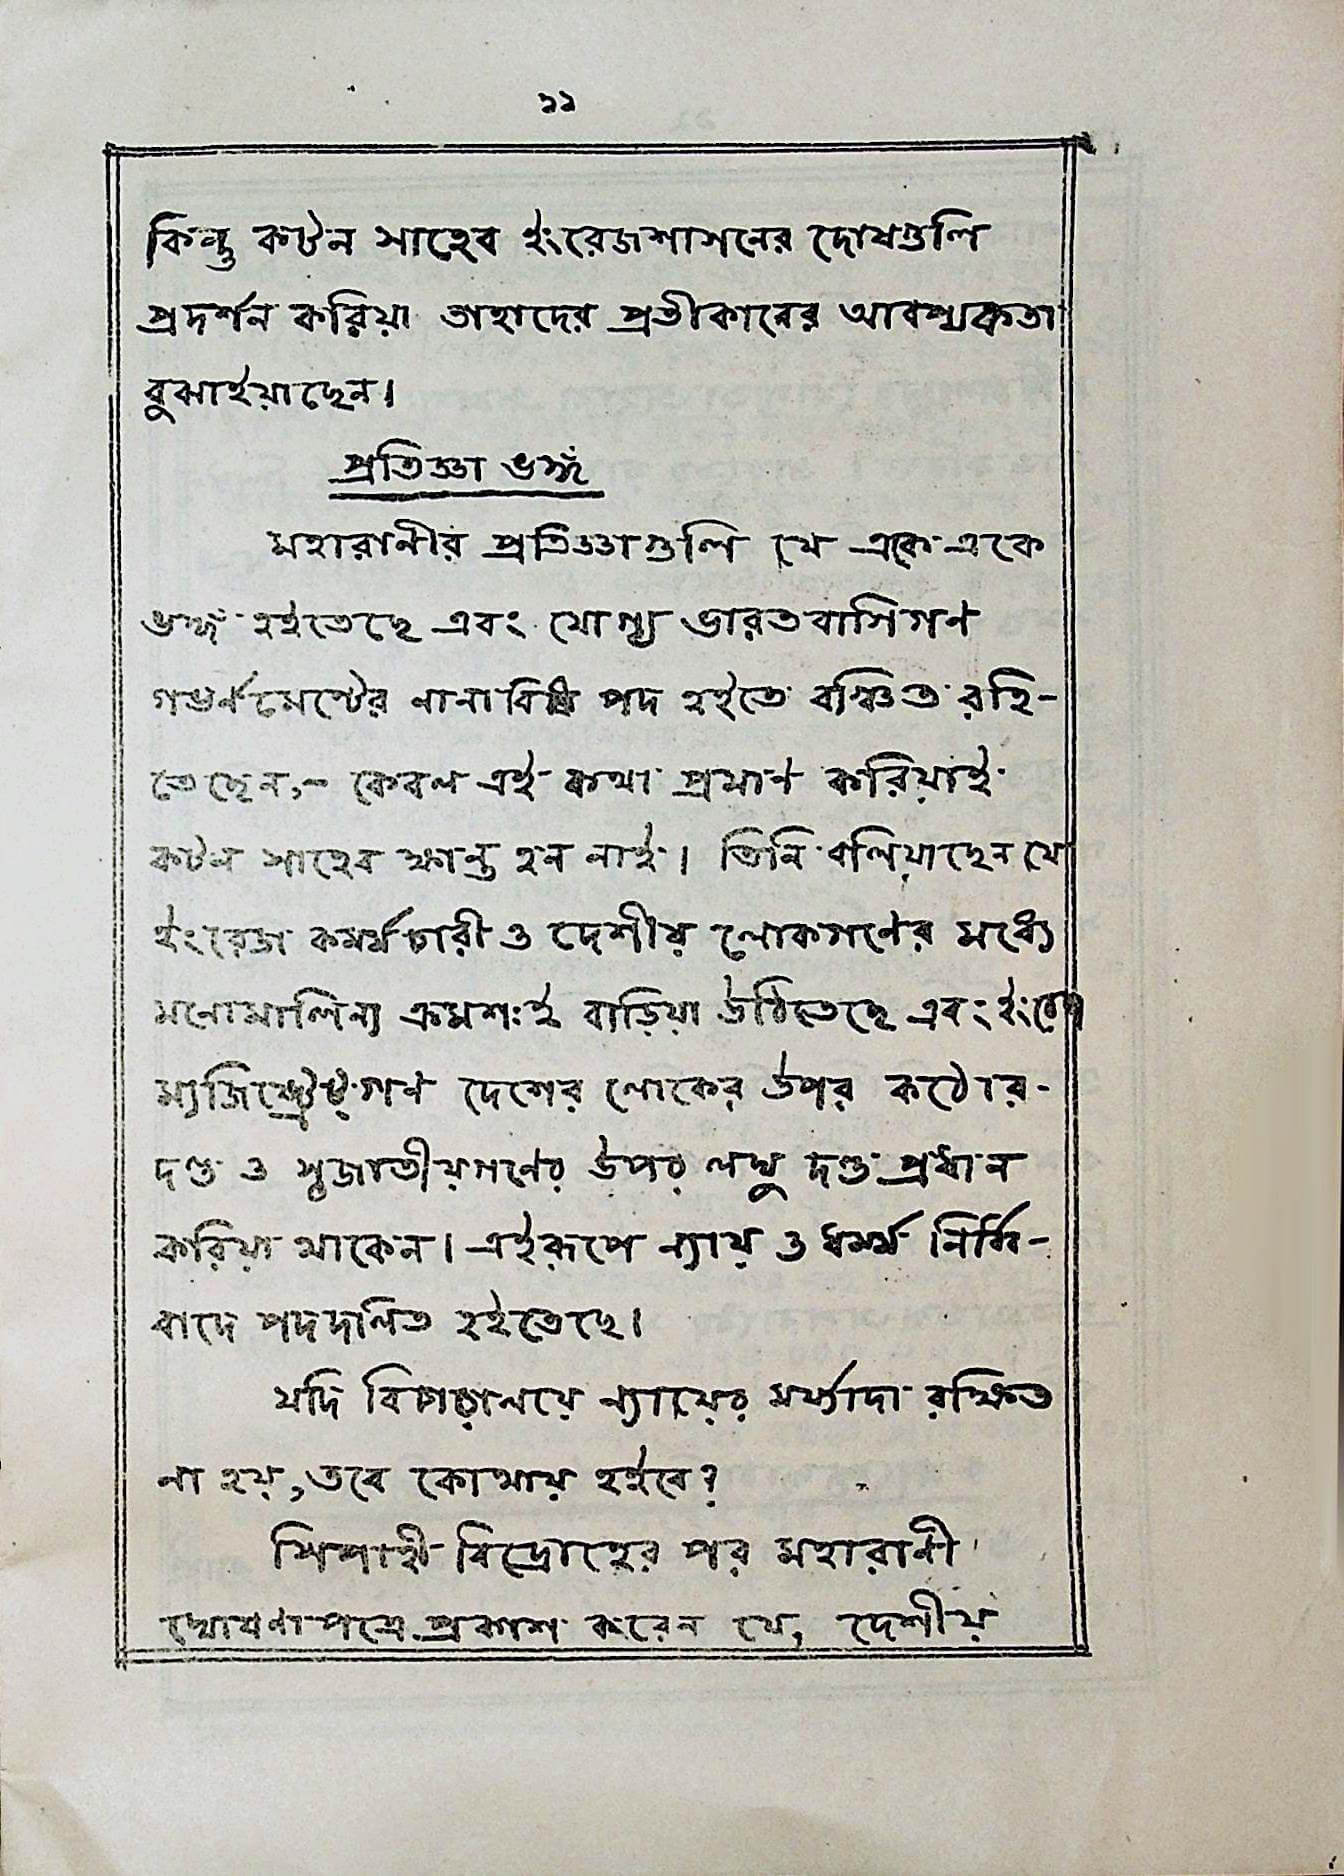 ১১
কিন্তু কটন সাহেব ইংরেজশাসনের দোষগুলি
প্রদর্শন করিয়া তাহাদের প্রতীকারের আবশ্যকতা
বুঝাইয়াছেন।
প্রতিজ্ঞা ভঙ্গ
মহারানীর প্রতিজ্ঞাগুলি যে একে একে
ভঙ্গ হইতেছে এবং যোগ্য ভারতবাসিগণ
গভর্নমেণ্টের নানাবিধ পদ হইতে বঞ্চিত রহি-
তেছেন,- কেবল এই কথা প্রমাণ করিয়াই
কটন সাহেব ক্ষান্ত হন নাই। তিনি বলিয়াছেন যে
ইংরেজ কর্ম্মচারী ও দেশীয় লোকগণের মধ্যে
মনোমালিন্য ক্রমশঃই বাড়িয়া উঠিতেছে এবং ইংরেজ
ম্যজিস্ট্রেটগণ দেশের লোকের উপর কঠোর-
দণ্ড ও স্বজাতীয়গণের উপর লঘু দণ্ড প্রধান
করিয়া থাকেন। এইরূপে ন্যায় ও ধর্ম্ম নির্ব্বি-
বাদে পদদলিত হইতেছে।
যদি বিচারালয়ে ন্যায়ের মর্য্যাদা রক্ষিত
না হয়, তবে কোথায় হইবে?
সিপাহী বিদ্রোহের পর মহারানী
ঘোষণাপত্রে প্রকাশ করেন যে, দেশীয়